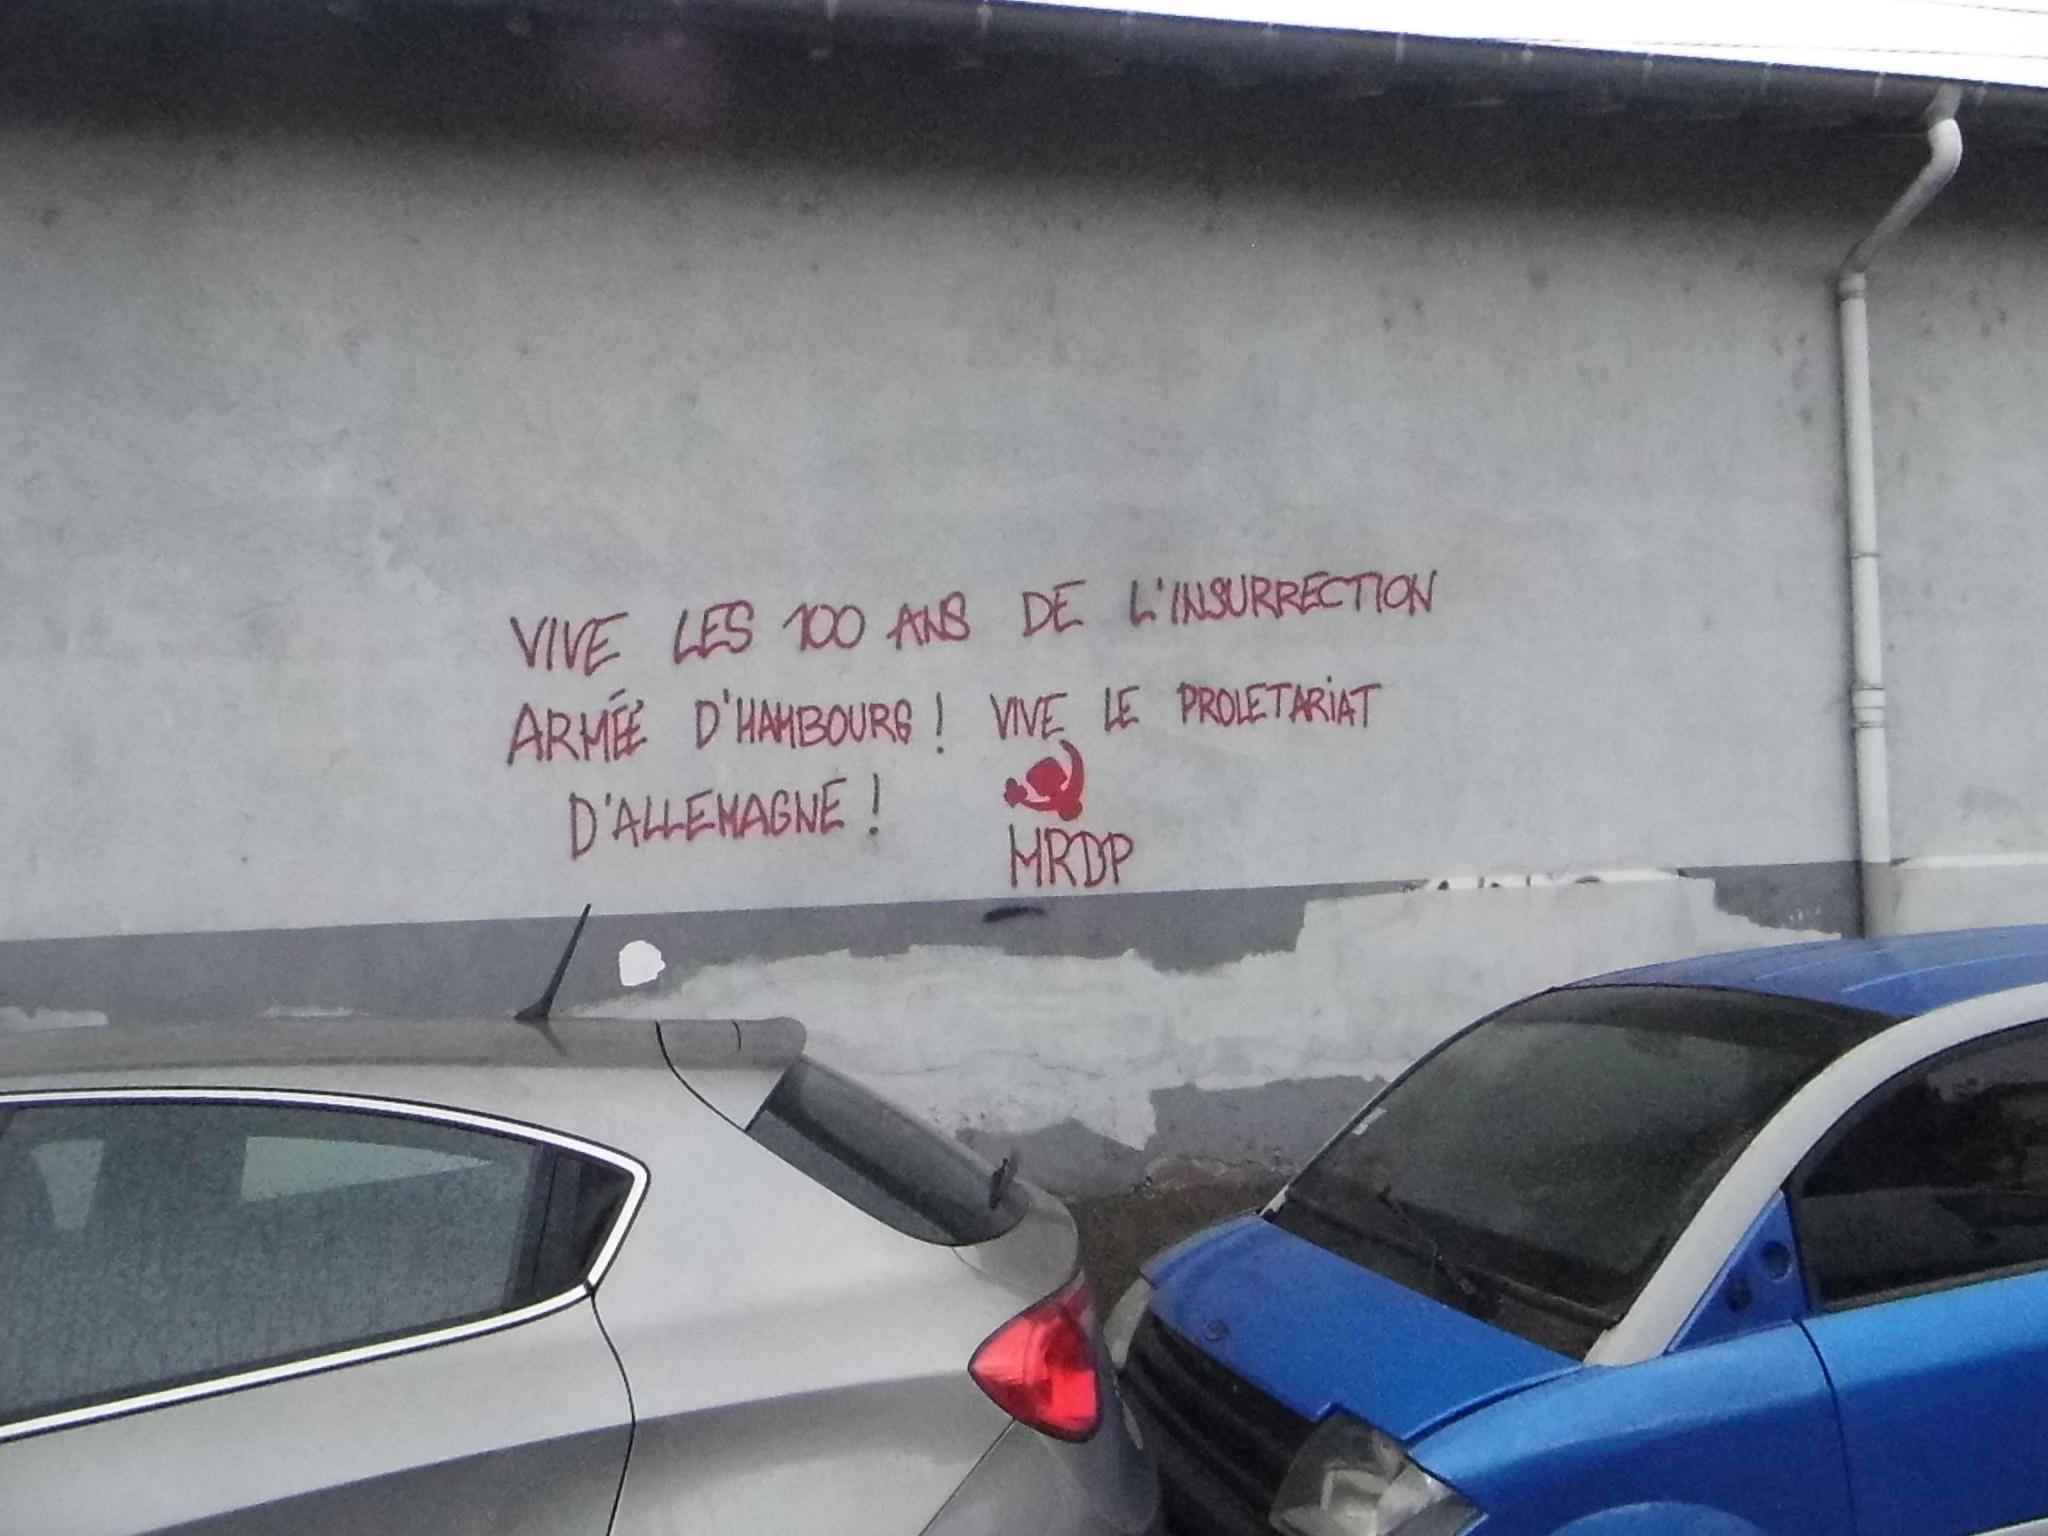 VIVE LES 100 ANS DE L'INSURRECTION
ARMÉE D'HAMBOURG ! VIVE LE PROLETARIAT
D'ALLEMAGNE !
MRDP